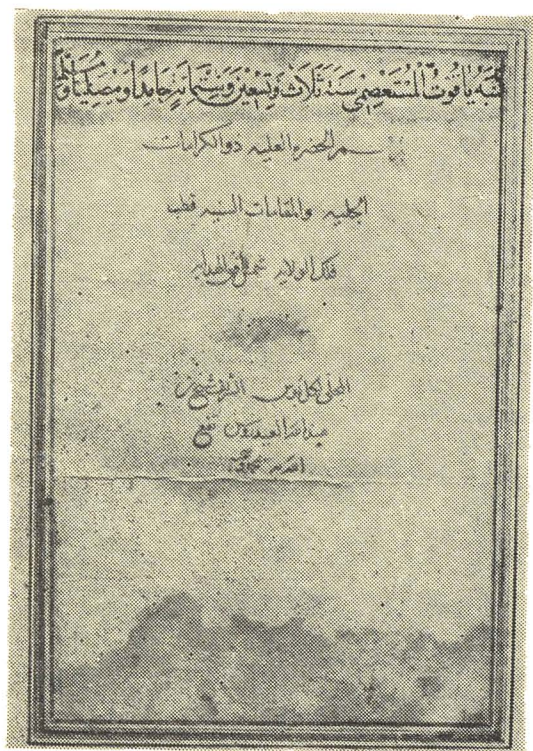 كتبه ياقوت المستعصمي سنة ثلاث وتسعين وستمائة حامدا ومصليا ومسلما
برسم الحضره العليه ذو الكرامات
الجليه والمقامات السنيه قطب
فلك الولايه شمس افق الهدايه
المحلي لكل بوس الشريف شيخ بن
عبدالله العيدروس نفع
الله به